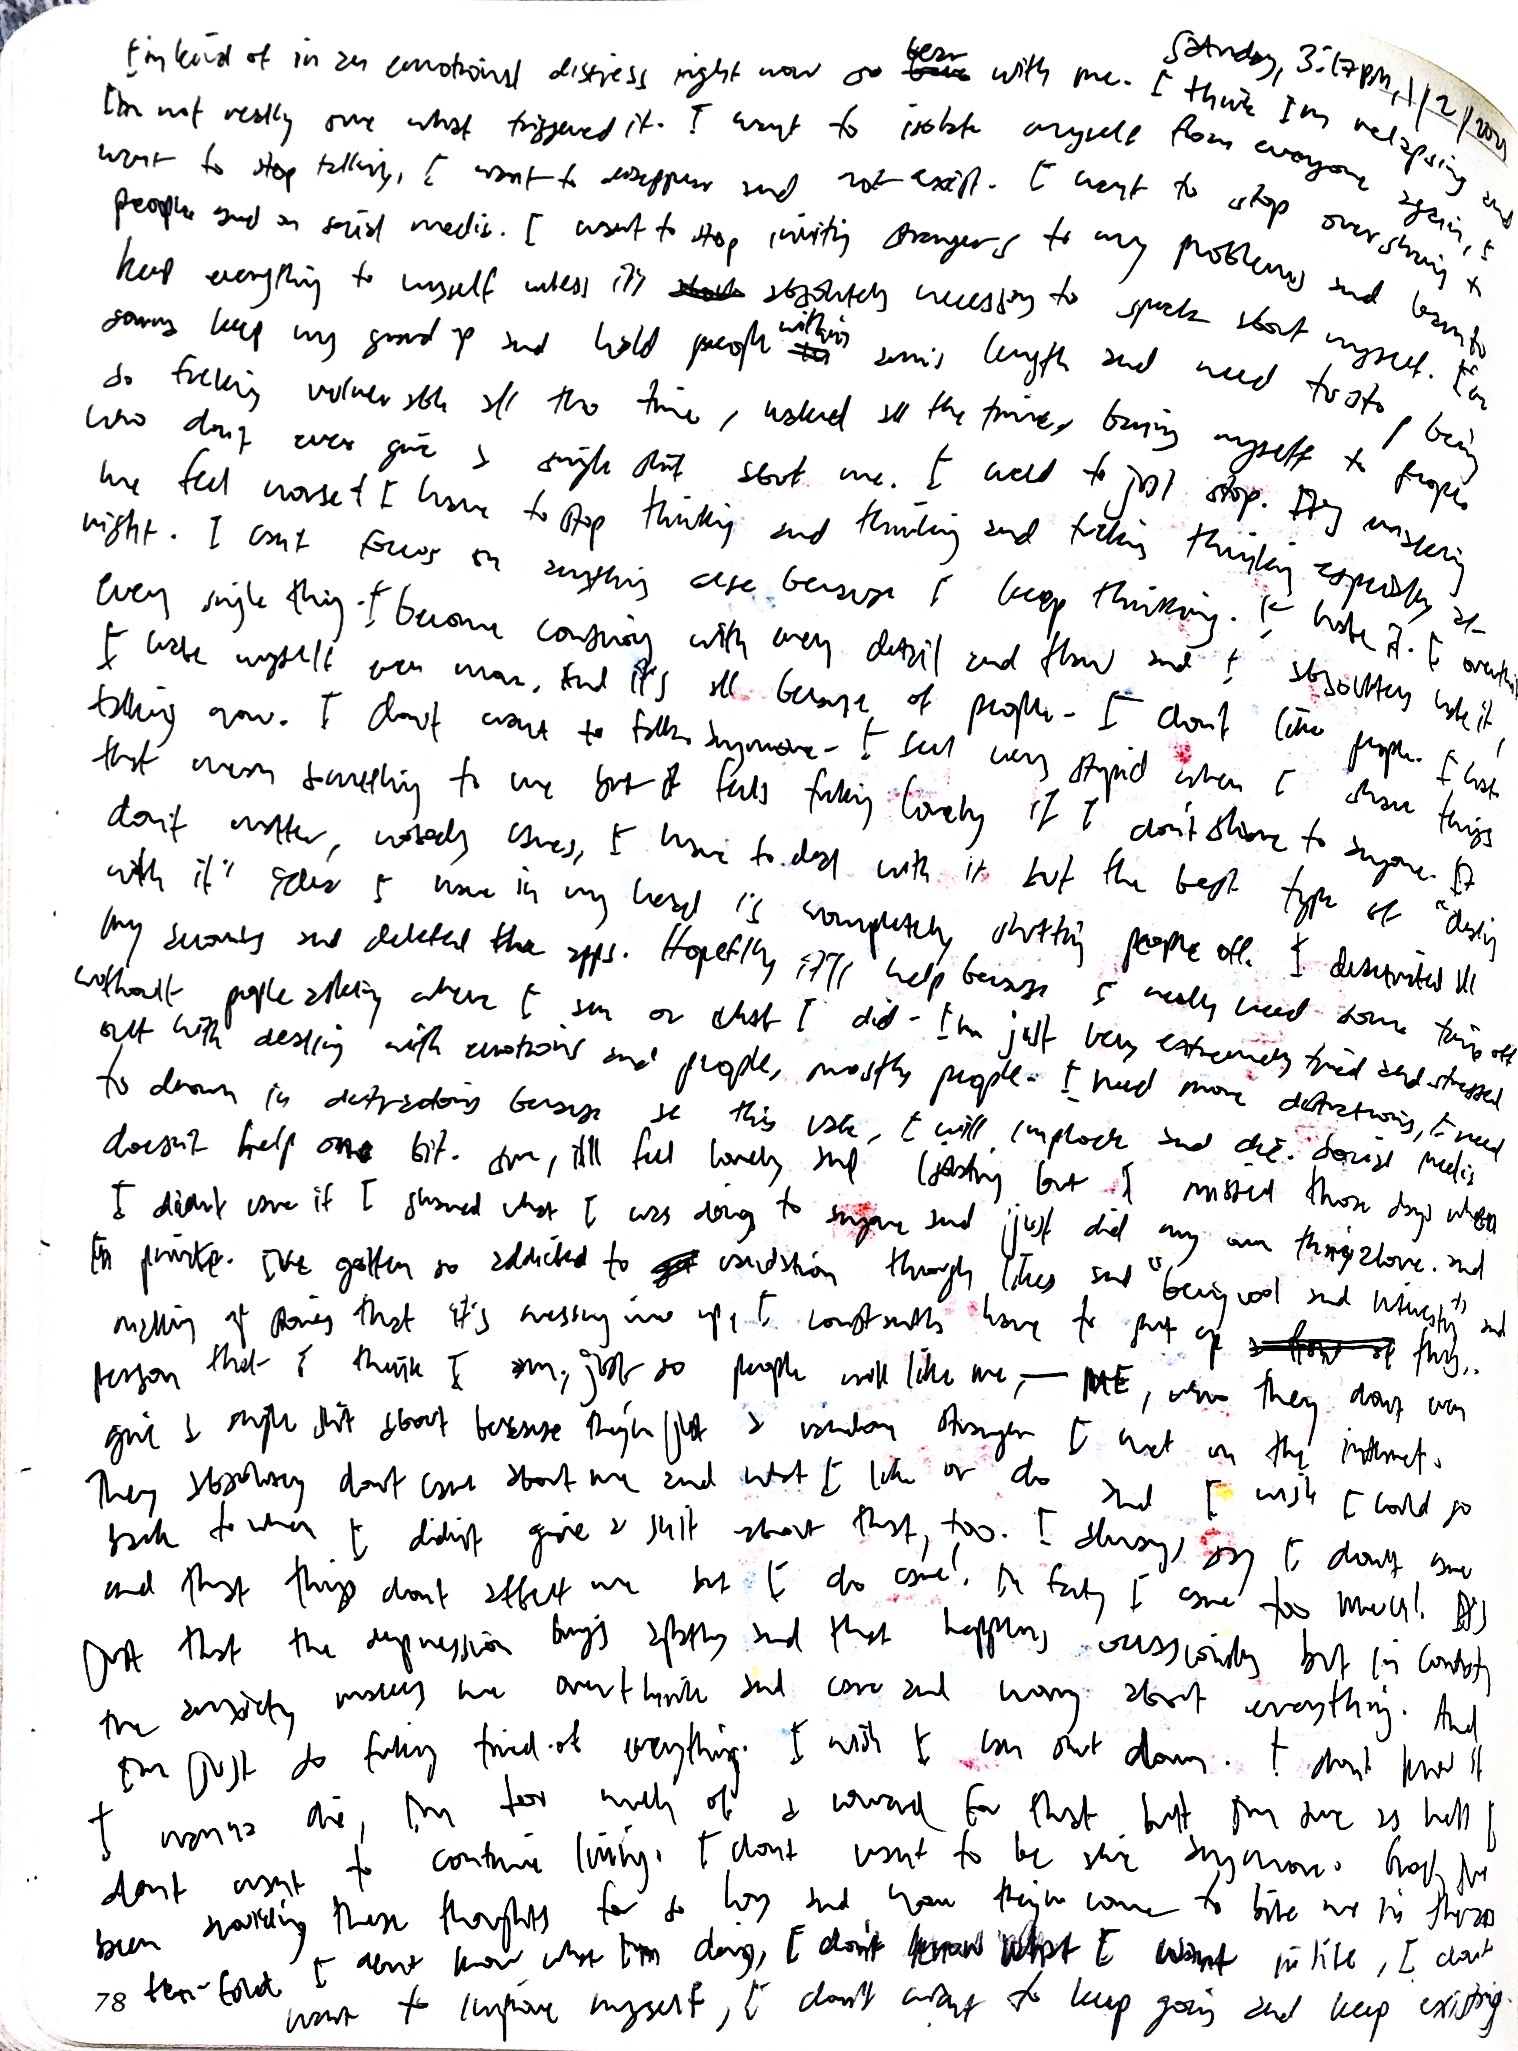 Saturday, 3:17pm, 1/2/2021
I'm kind of in an emotional distress right now so bear with me. I think I'm relapsing and
I'm not really sure what triggered it. I want to isolate myself from everyone again, I
want to stop talking, I want to disappear and not exist. I want to stop oversharing to
people and on social media. I want to stop inviting strangers to my problems and learn to
keep everything to myself unless it's absolutely necessary to speak about myself. I'm
gonna keep my guard up and hold people within arm's length and need to stop being
so fucking vulnerable all the time, naked all the time, baring myself to people
who don't even give a single shit about me. I need to just stop. It's making
me feel worse & I have to stop thinking and thinking and fucking thinking especially at
night. I can't focus on anything else because I keep thinking. I hate it. I overthink
every single thing. I become consuming with every detail and flaw and I absolutely hate it,
I hate myself even more. And it's all because of people. I don't like people. I hate
talking now. I don't want to talk anymore. I feel very stupid when I share things
that mean something to me but it feels fucking lonely if I don't share to anyone. It
don't matter, nobody cares, I have to deal with it but the best type of "dealing
with it" idea I have in my head is completely shutting people off. I deactivated all
my accounts and deleted the apps. Hopefully it'll help because I really need some time off
without people asking where I am or what I did. I'm just very extremely tired and stressed
out with dealing with emotions and people, mostly people. I need more distractions, I need
to drown in distractions because at this rate, I will implode and die. Social media
doesn't help one bit. Sure, it'll feel lonely and but I missed those days when
I didn't care if I shared what I was doing to anyone and just did my own things alone and
in private. I've gotten so addicted to validation through likes and "being cool and interesting" and
making up stories that it's messing me up, I constantly have to put up this..
person that I think I am, just so people will like me, — ME, who they don't even
give a single shit about because they're just a random stranger I met on the internet.
They absolutely don't care about me and what I like or do and I wish I could go
back to when I didn't give a shit about that, too. I always say I don't care
and that things don't affect me but I do care! In fact, I care too much! It's
just that the depression brings apathy and that happens occasionally but in
the anxiety makes me overthink and care and worry about everything. And
I'm just so fucking tired of everything. I wish I can shut down. I don't know if
I wanna die, I'm too much of a coward for that but I'm sure as hell I
don't want to continue living. I don't want to be alive anymore. I've
been avoiding these thoughts for so long and now they've come to bite me in the ass
ten-fold. I don't know what I'm doing, I don't know what I want in life, I don't
want to improve myself, I don't want to keep going and keep existing.
78